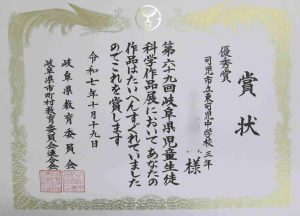 賞状
優秀賞
可児市立東可児中学校三年
様
第六十九回岐阜県児童生徒
科学作品展においてあなたの
作品はたいへんすぐれていました
のでこれを賞します
令和七年十月十九日
岐阜県教育委員会
岐阜県市町村教育委員会連合会